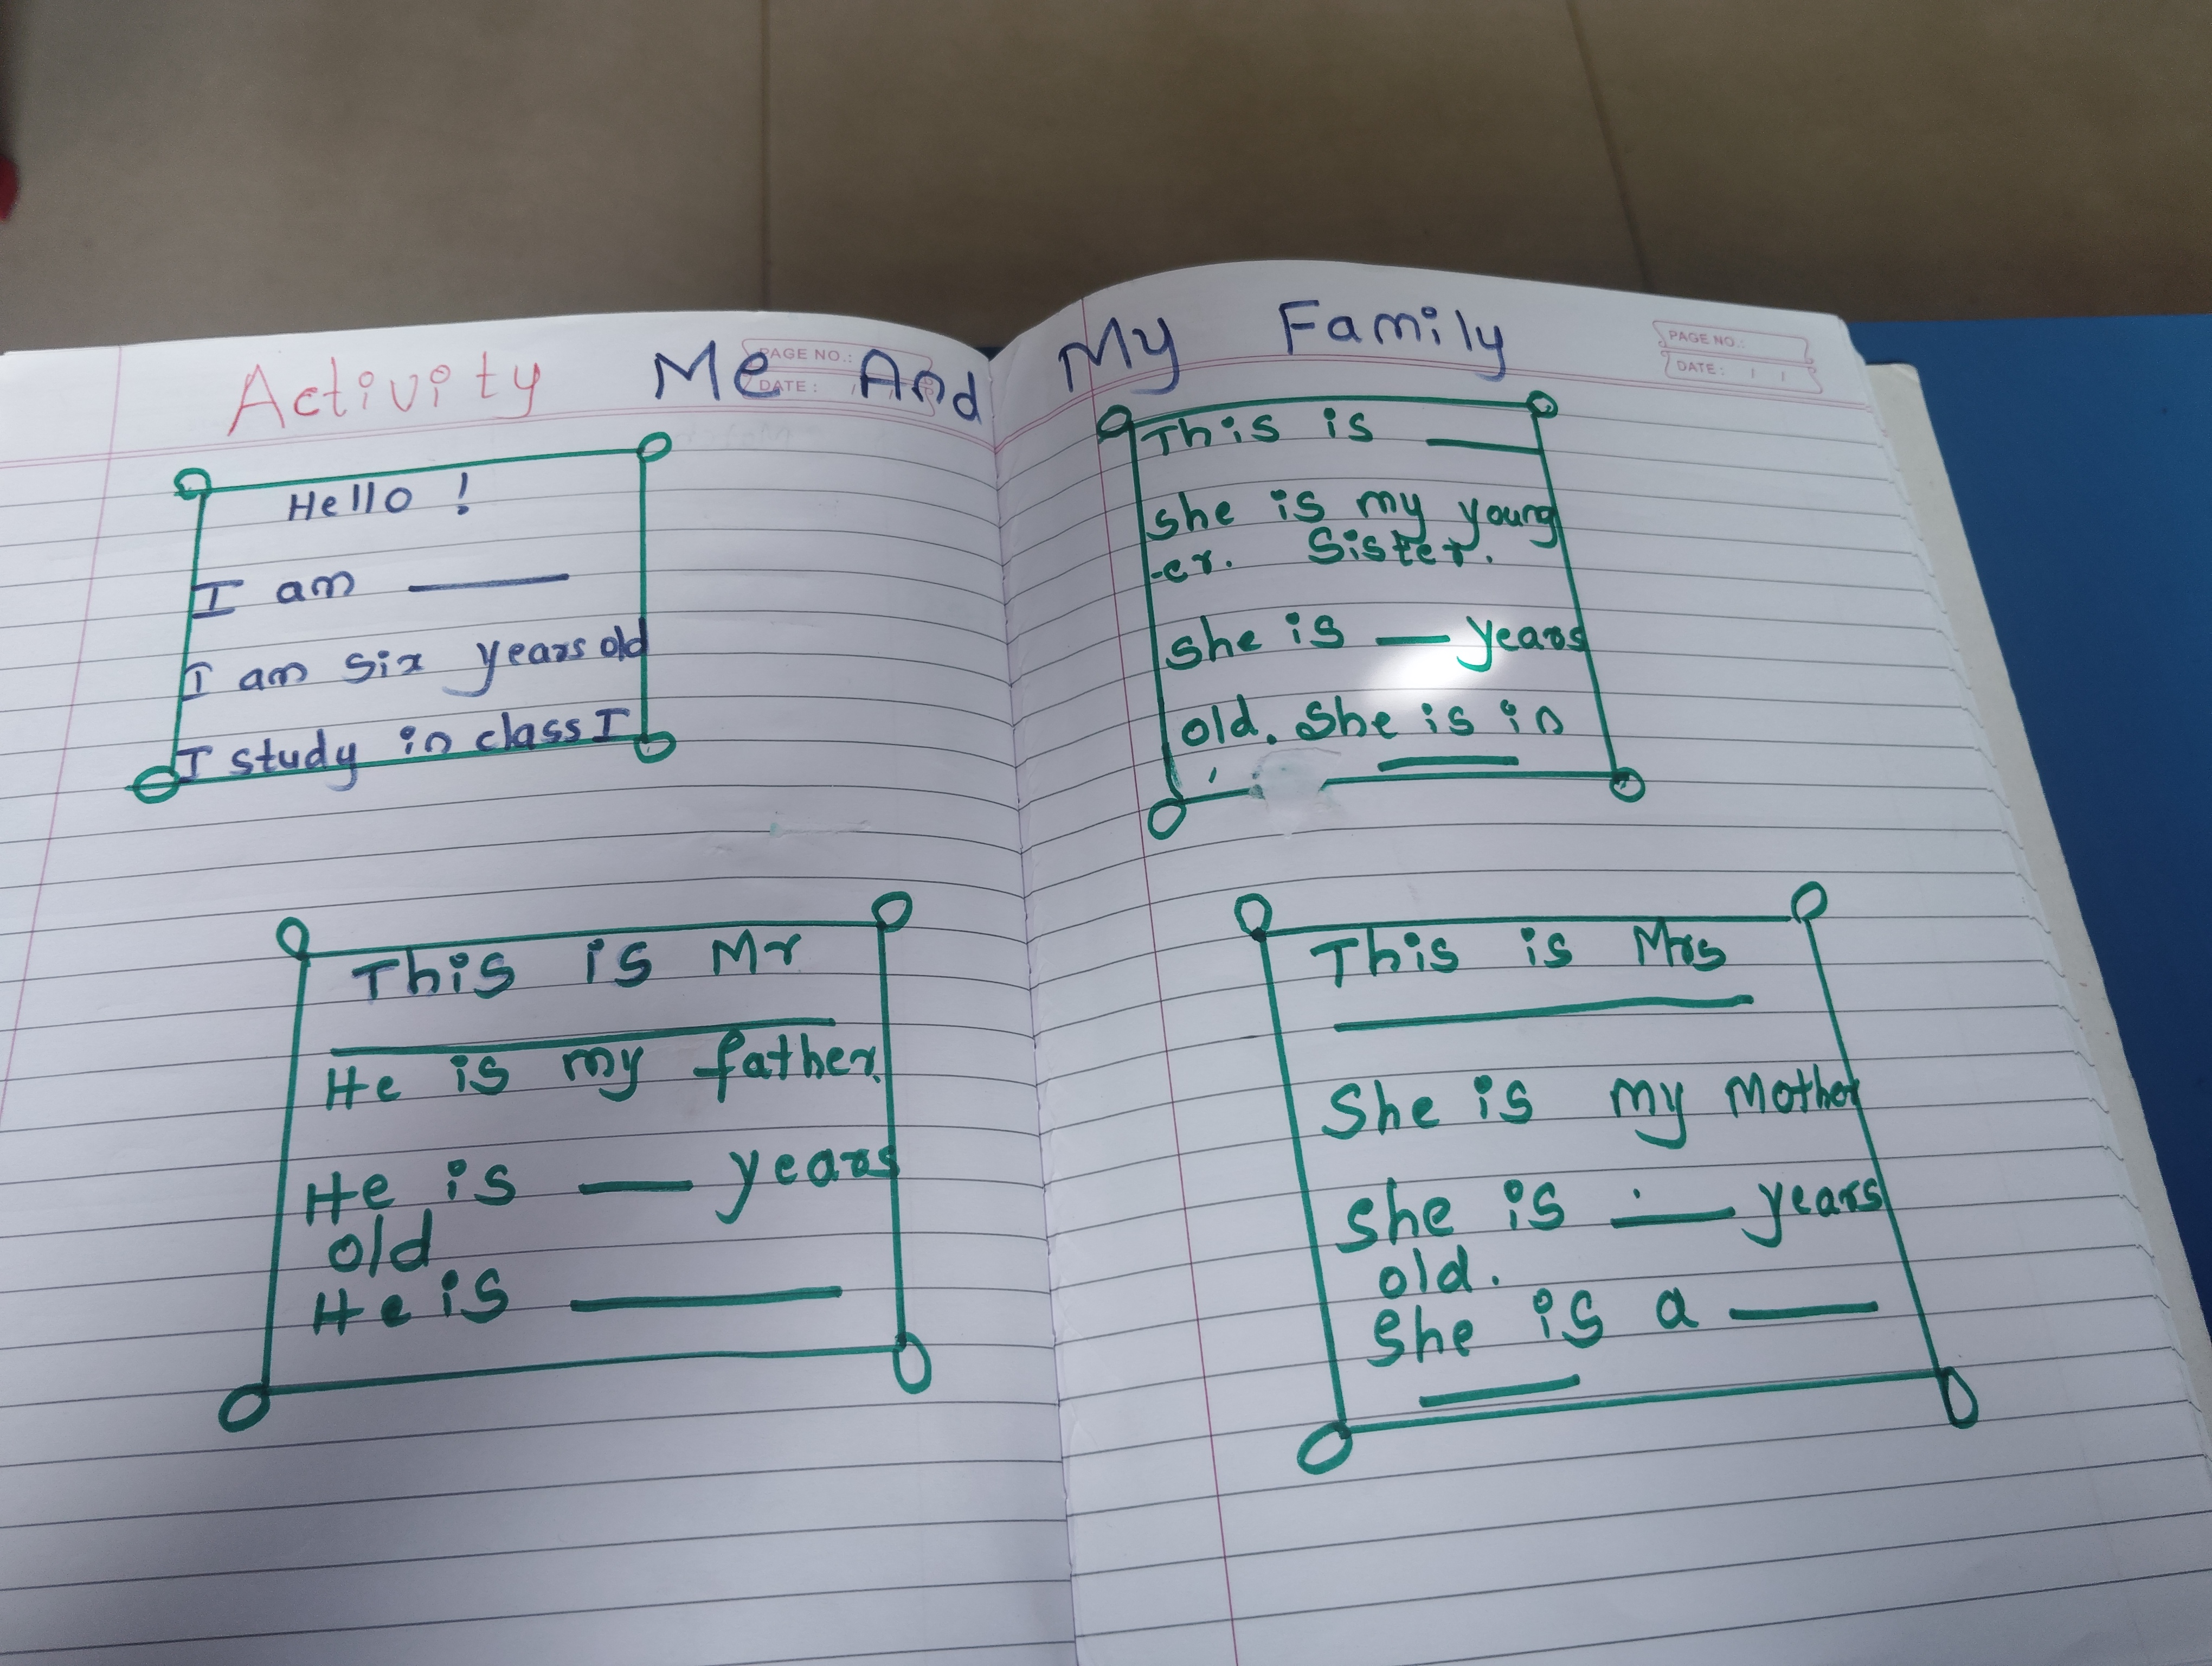 Activity Me And My Family
PAGE NO.:
DATE: / /
PAGE NO.:
DATE: / /
Hello !
I am ____
I am six years old
I study in class I
This is ____
she is my young
-er. Sister.
she is __ years
old. She is in
____
This is Mr
________
He is my father.
He is ___ years
old
He is ______
This is Mrs
________
She is my Mother
She is ___ years
old.
She is a ____
____